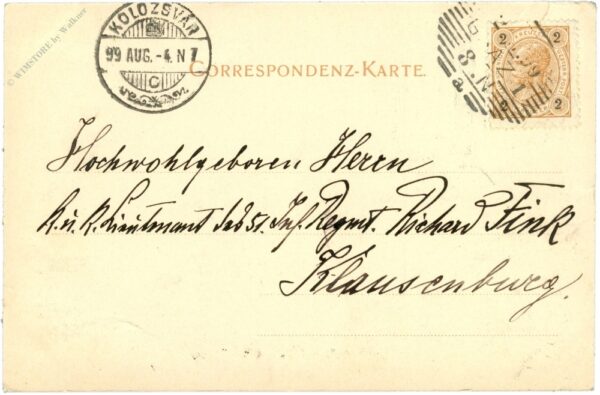 © WIMSTORE by Walkner
KOLOZSVÁR
99 AUG. -4. N 7
C
CORRESPONDENZ-KARTE.
2 2
2 2
Hochwohlgeboren Herrn
k. u. k. Lieutnant des 51. Inf. Regmt. Richard Fink
Klausenburg.